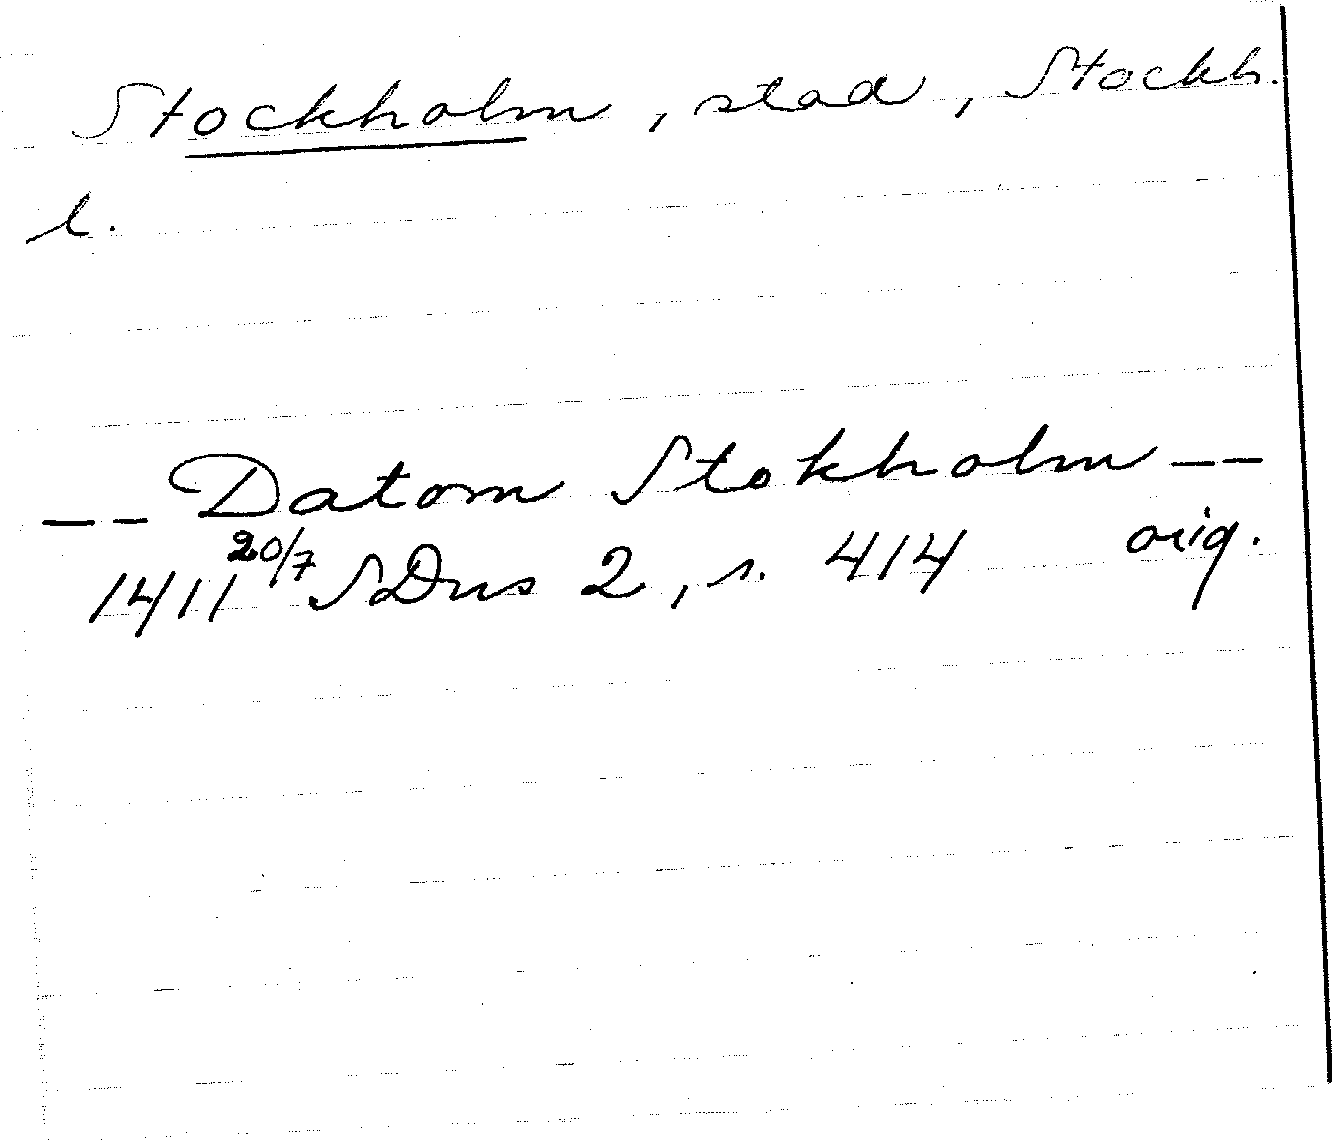 Stockholm, stad, Stockh.
l.
-- Datom Stokholm --
1411 20/7 SDns 2, s. 414 orig.